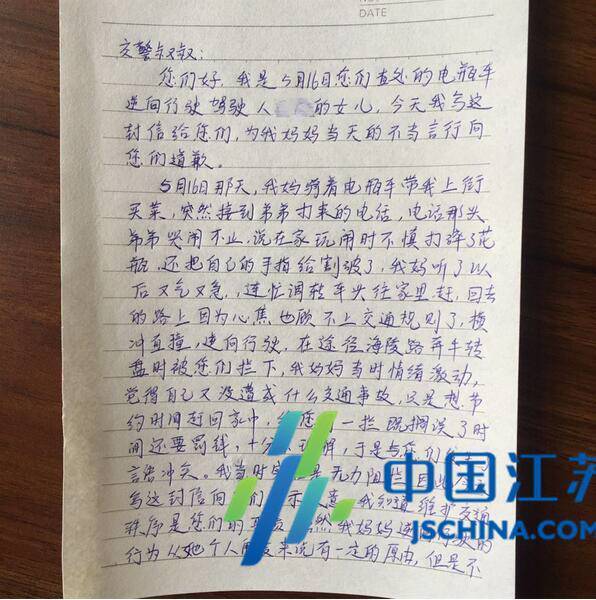 DATE
交警叔叔：
您们好，我是5月16日您们查处的电瓶车
逆向行驶驾驶人的女儿，今天我写这
封信给您们，为我妈妈当天的不当言行向
您们道歉。
5月16日那天，我妈骑着电瓶车带我上街
买菜，突然接到弟弟打来的电话，电话那头
弟弟哭闹不止，说在家玩闹时不慎打碎了花
瓶，还把自己的手指给割破了，我妈听了以
后又气又急，连忙调转车头往家里赶，回去
的路上因为心焦也顾不上交通规则了，横
冲直撞，逆向行驶，在途径海陵路奔牛转
盘时被您们拦下，我妈妈当时情绪激动，
觉得自己又没造成什么交通事故，只是想节
约时间赶回家中，您一拦既搁误了时
间还要罚钱，十分解，于是与您们
言语冲突。我当时无力阻拦，因此
写这封信向们示意，我知道维护交通
秩序是您们的然我妈妈逆的
行为从她个人角度来说有一定的原由，但是不
中国江苏
JSCHINA.COM